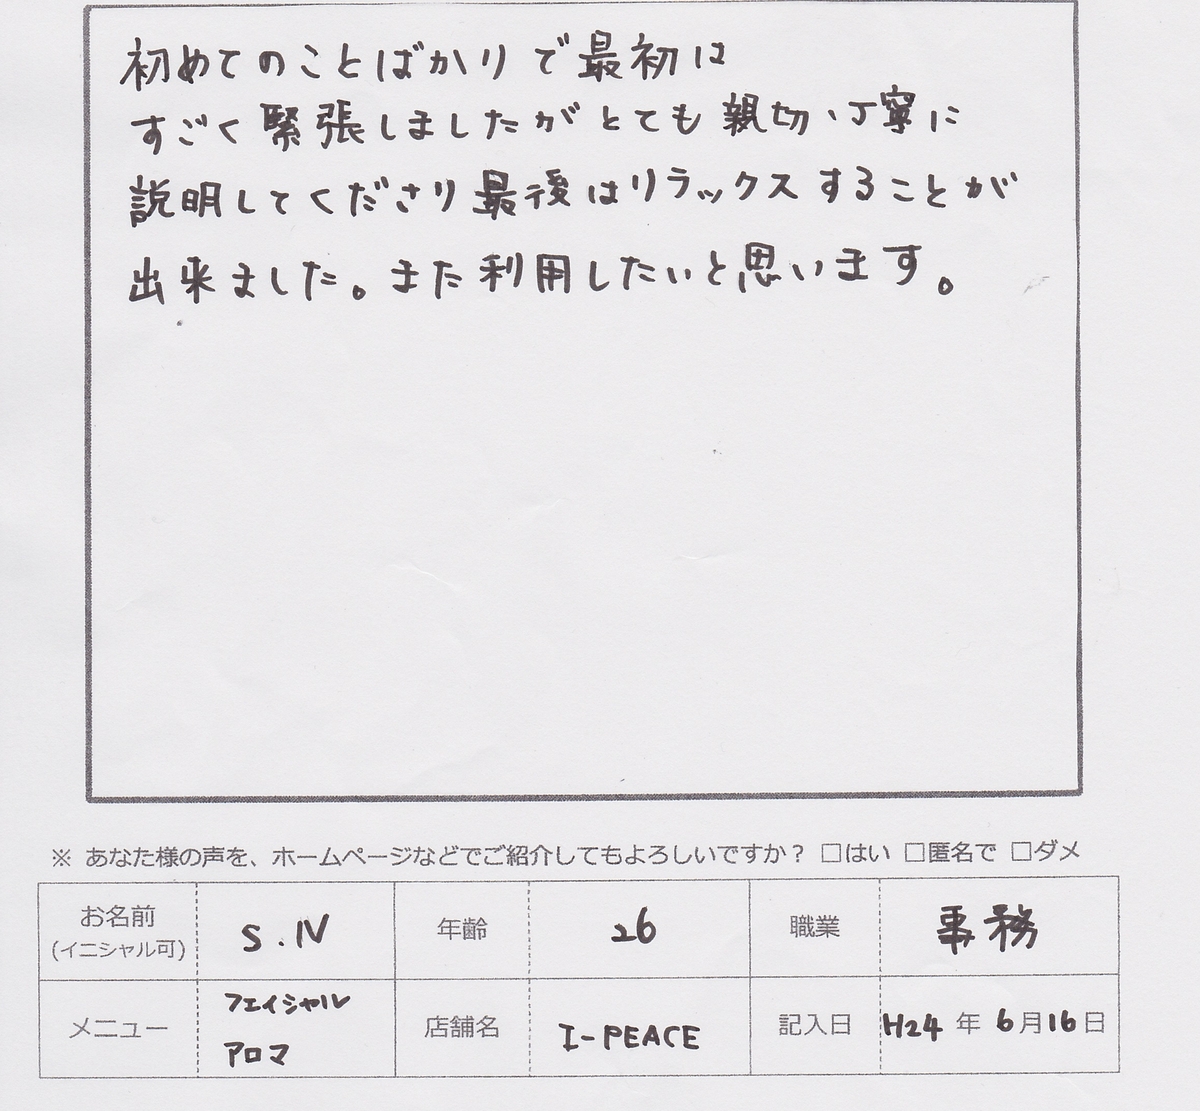 初めてのことばかりで最初は
すごく緊張しましたがとても親切、丁寧に
説明してくださり最後はリラックスすることが
出来ました。また利用したいと思います。
※ あなた様の声を、ホームページなどでご紹介してもよろしいですか？ □はい □匿名で □ダメ
お名前
(イニシャル可)
S.N
年齢
26
職業
事務
メニュー
フェイシャル
アロマ
店舗名
I-PEACE
記入日
H24 年 6月16日